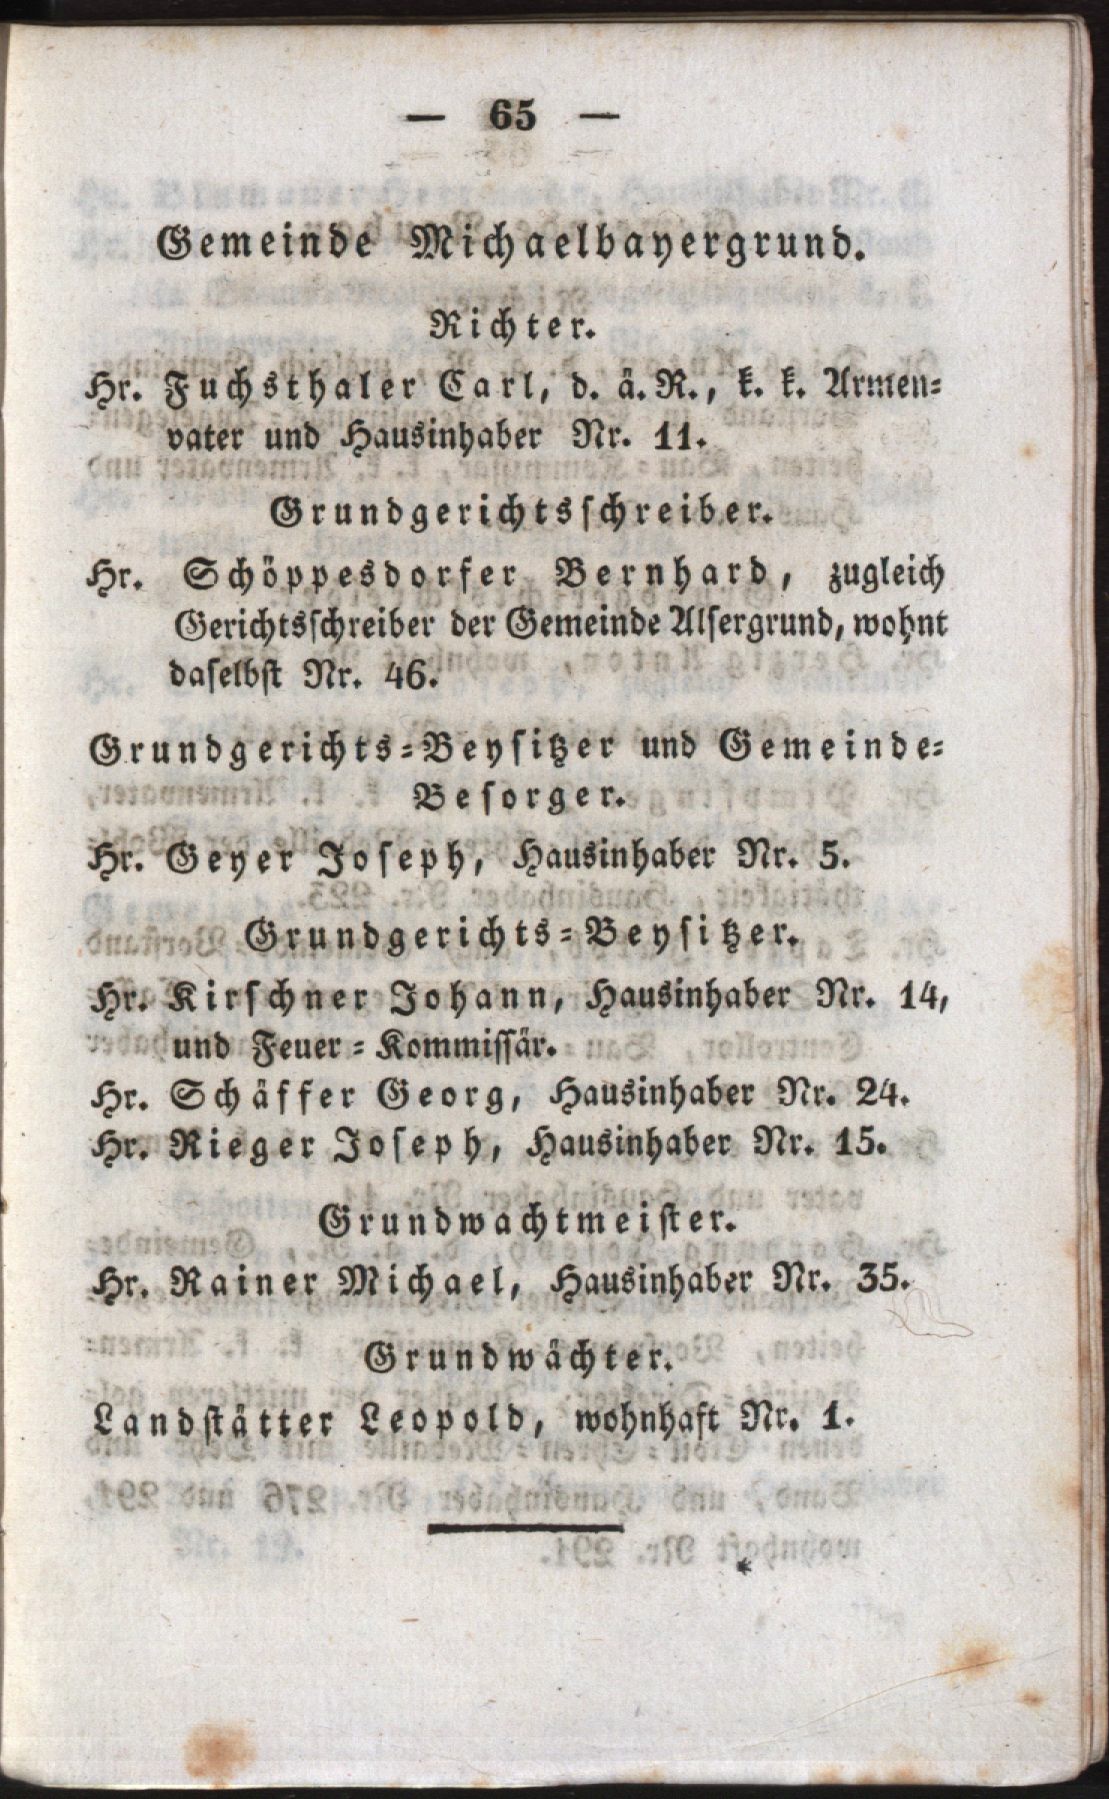 — 65 —
Gemeinde Michaelbayergrund.
Richter.
Hr. Fuchsthaler Carl, d. ä. R., k. k. Armen=
vater und Hausinhaber Nr. 11.
Grundgerichtsschreiber.
Hr. Schöppesdorfer Bernhard, zugleich
Gerichtsschreiber der Gemeinde Alsergrund, wohnt
daselbst Nr. 46.
Grundgerichts=Beysitzer und Gemeinde=
Besorger.
Hr. Geyer Joseph, Hausinhaber Nr. 5.
Grundgerichts=Beysitzer.
Hr. Kirschner Johann, Hausinhaber Nr. 14,
und Feuer=Kommissär.
Hr. Schäffer Georg, Hausinhaber Nr. 24.
Hr. Rieger Joseph, Hausinhaber Nr. 15.
Grundwachtmeister.
Hr. Rainer Michael, Hausinhaber Nr. 35.
Grundwächter.
Landstätter Leopold, wohnhaft Nr. 1.